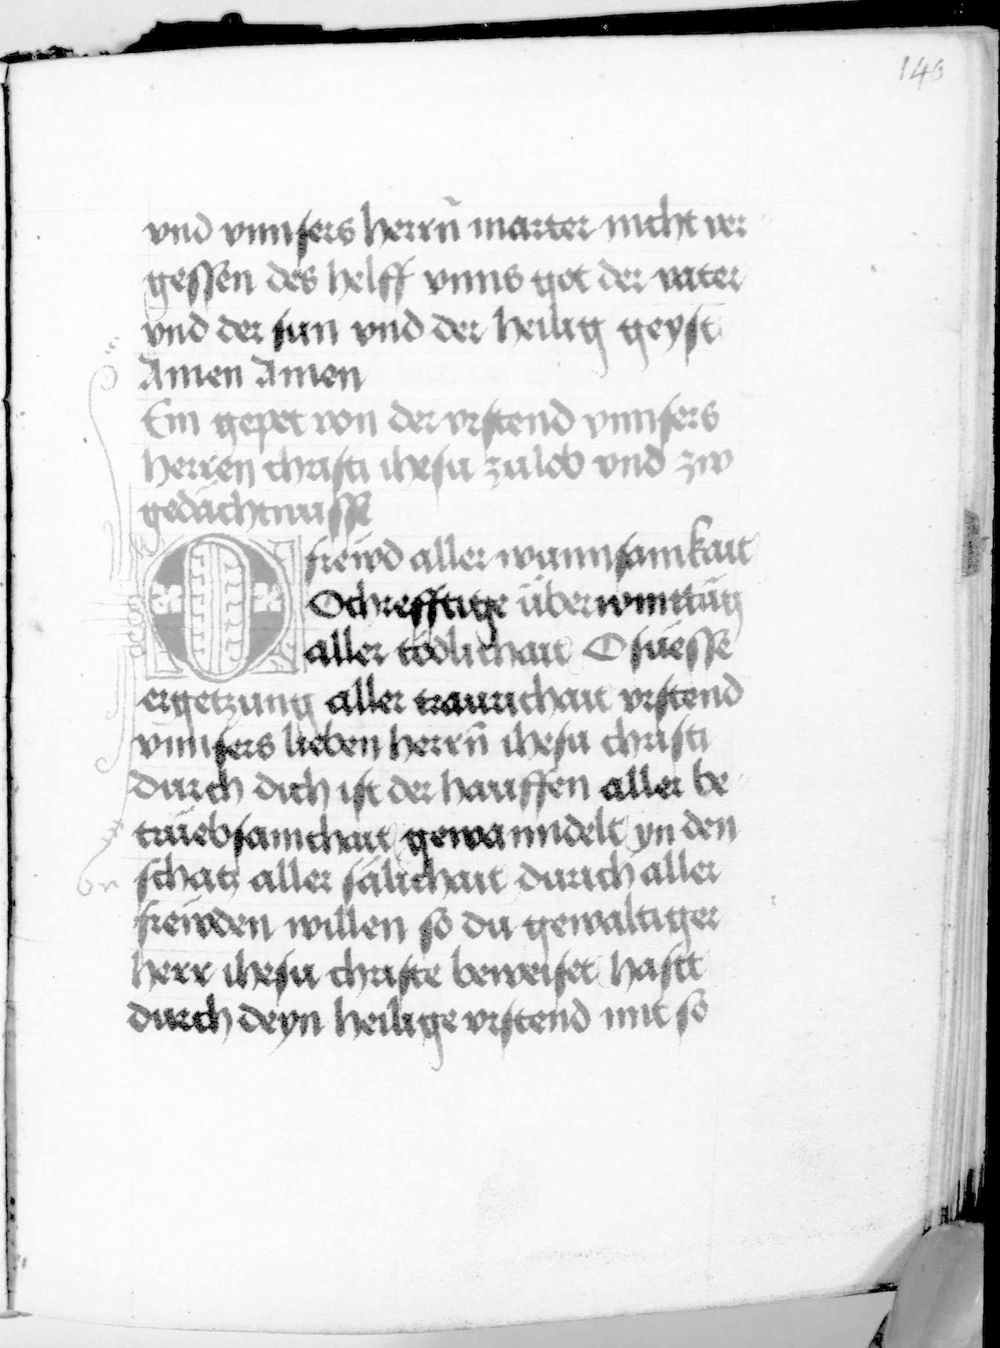 140
vnd vnnsers herrn̄ marter nicht ver
gessen des helff vnns got der vater
vnd der sun vnd der heilig geyst
Amen Amen
Ein gepet von der vrstend vnnsers
herren christi ihesu zu lob vnd zw
gedächtnusse
O frewd aller wunnsamkait
O chrefftige überwinttūg
aller tödlichait O süesse
ergetzung aller traurichait vrstend
vnnsers lieben herrn̄ ihesu christi
durch dich ist der hauffen aller be
trüebsamchait gewanndelt yn den
schatz aller sälichait durich aller
frewden willen so du gewaltiger
herr ihesu christe beweiset hastt
durch deyn heilige vrstend mit so